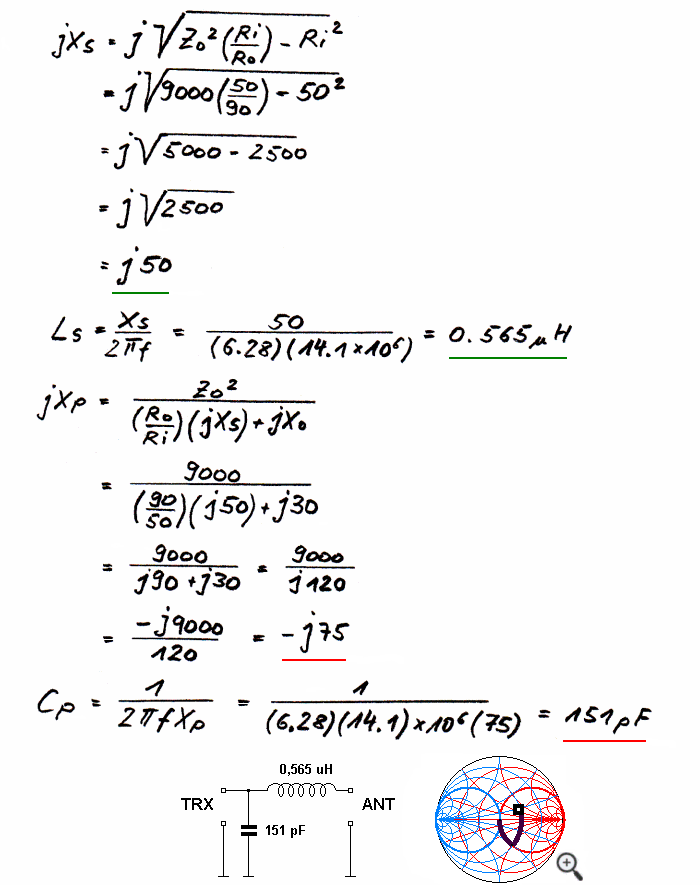 jXs = j√(Zo²(Ri/Ro) - Ri²)
= j√(9000(50/90) - 50²)
= j√(5000 - 2500)
= j√2500
= j50
Ls = Xs/2πf = 50/(6.28)(14.1×10⁶) = 0.565μH
jXp = Zo²/(Ro/Ri)(jXs)+jXo
= 9000/(90/50)(j50)+j30
= 9000/j90+j30 = 9000/j120
= -j9000/120 = -j75
Cp = 1/2πfXp = 1/(6.28)(14.1)×10⁶(75) = 151pF
0,565 uH
TRX
ANT
151 pF